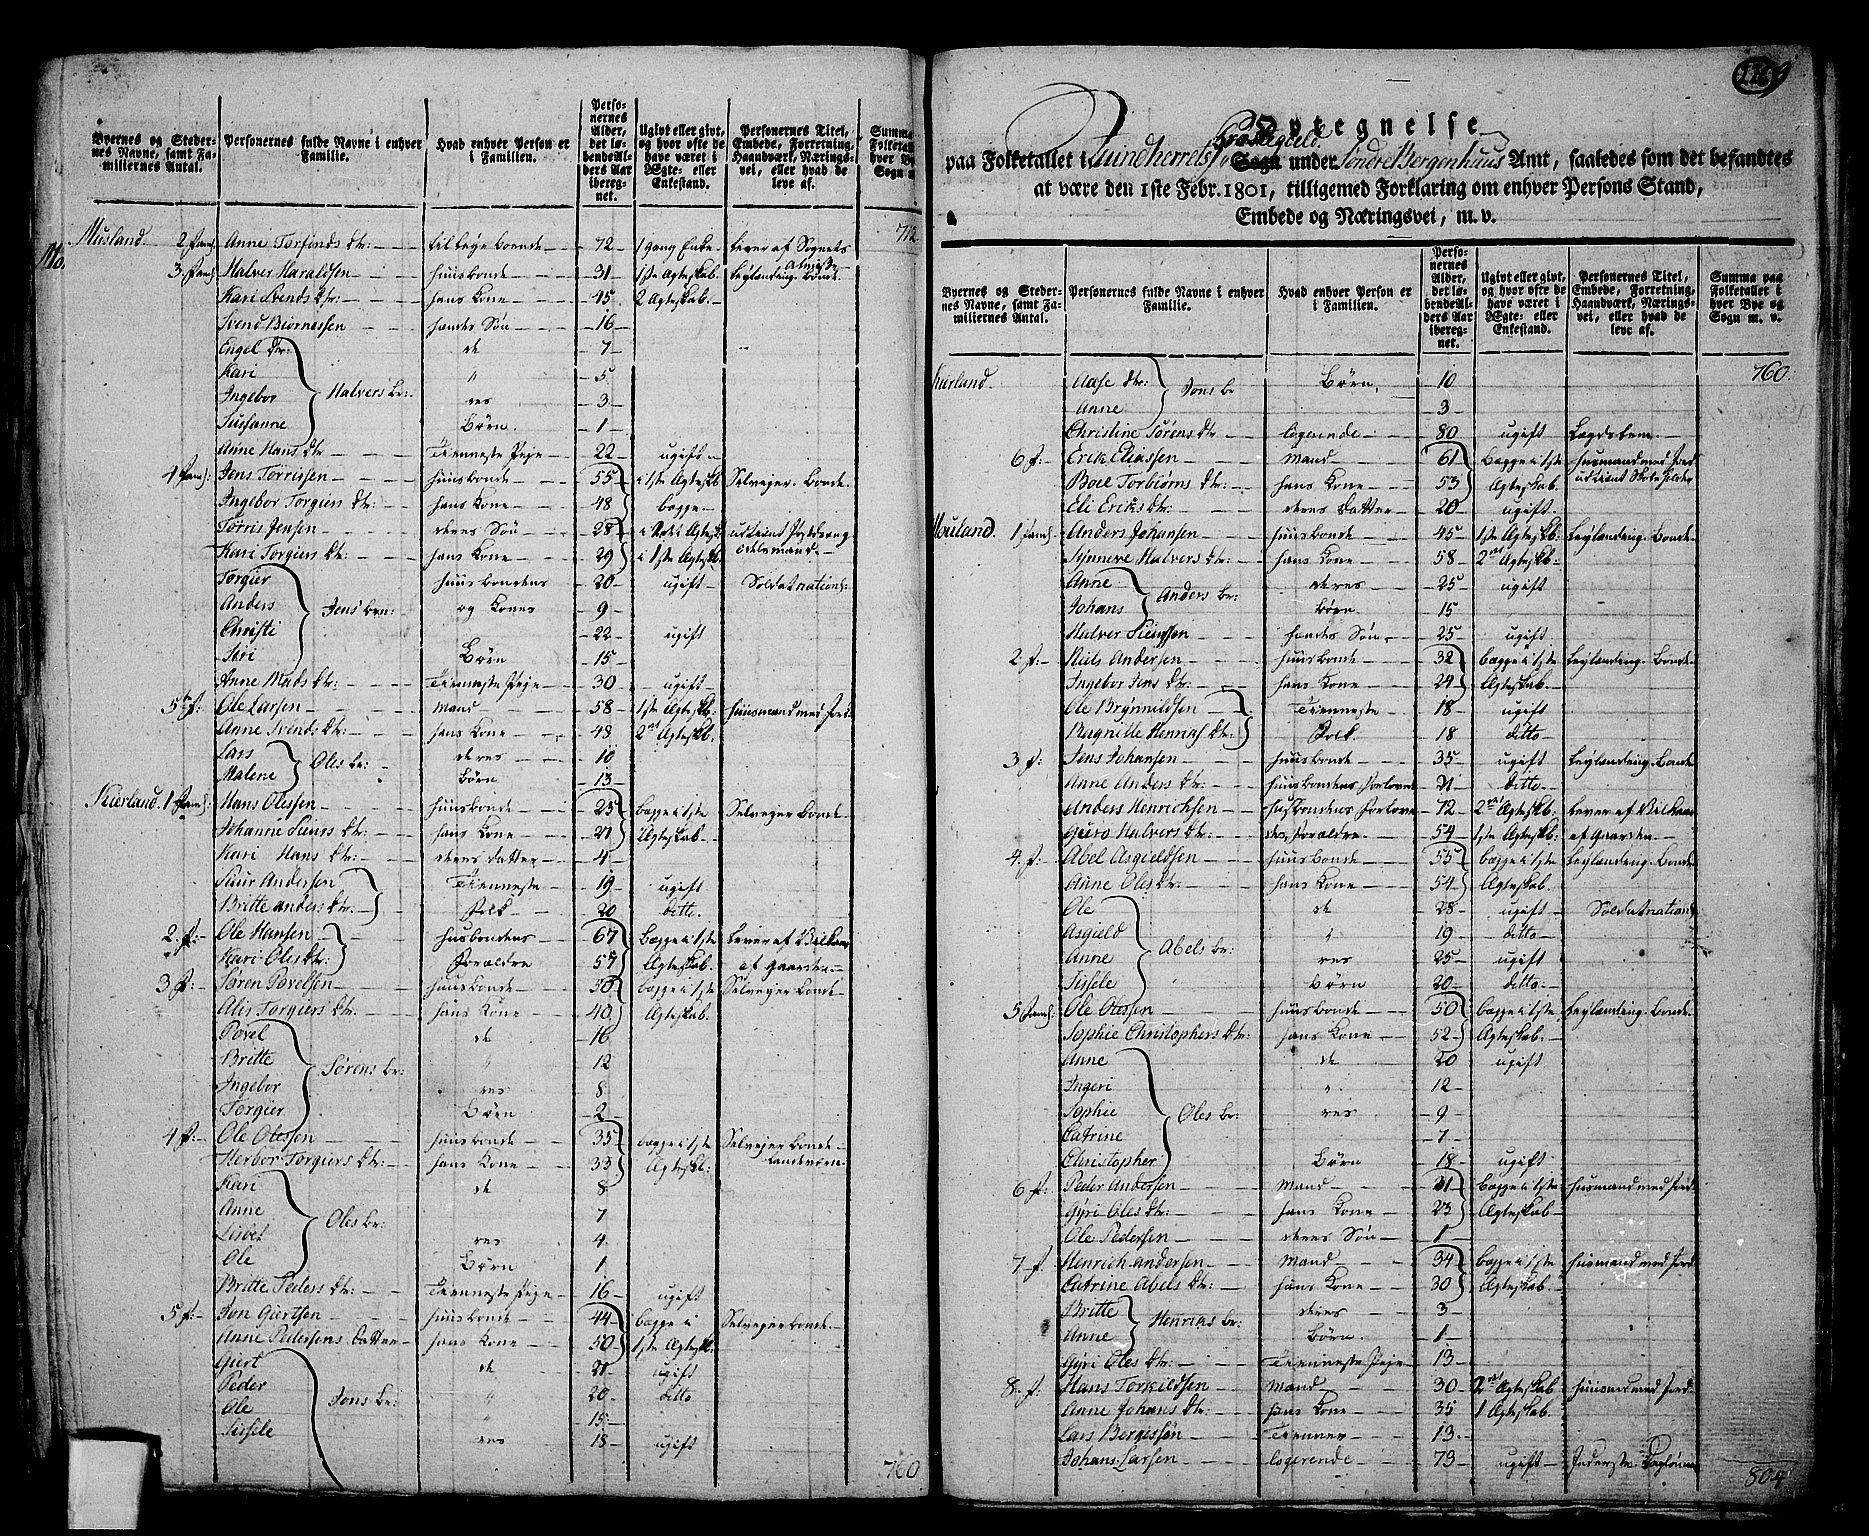 Byernes og Steder-
nes Navne, samt Fa-
miliernes Antal.
Personernes fulde Navne i enhver
Familie.
Hvad enhver Person er
i Familien.
Perso-
nernes
Alder,
det lø-
bende Al-
ders Aar
ibereg-
net.
Ugivt eller givt,
og hvor ofte de
have været i
Ægte- eller
Enkestand.
Personernes Titel,
Embede, Forretning,
Haandværk, Nærings-
vei, eller hvad de
leve af.
Summa
Folketallet
hver By
Sogn m
712
Musland. 2 Fam: Anne Torfinds Dtr: til leye boende 72 1 gang Enke lever af Sognets Almisse
3 Fam: Halver Haraldsen huusbonde 31 1ste Ægteskab leylænding. bonde.
Kari Svends Dtr: hans Kone 45 2 Ægteskab.
Svend Biørnessen hendes Søn 16
Engel Dtr: de 7
Kari " 5
Ingebor Halvers br: res 3
Susanne Børn. 1
Anne Hans Dtr: Tienneste Pige 22 ugift
4 Fam: Jens Torrissen huusbonde 55 i 1ste Ægteskb Selvejer. bonde.
Ingebor Torgiers Dtr: hans Kone 48 begge
Torris Jensen deres Søn 28
Kari Torgiers Dtr: hans Kone 29 i 1ste Ægteskb.
Torgier huusbondens 20 ugift Soldat national:
Anders Jens' brn: og Kones 9
Christi 22 ugift
Siri Børn 15
Anne Mads Dtr: Tienneste Pige 30 ugift
5te f: Ole Larsen Mand 58 1ste Ægteskb: huusmand med Jord
Anne Svends Dtr: hans Kone 48 2den Ægteskb:
Lars Oles br: deres 10
Malene Børn 13
Skierland. 1 Fam: Hans Olessen huusbonde 25 begge i 1ste Selvejer bonde.
Johanne Siurs Dtr: hans Kone 21 Ægteskab.
Kari Hans Dtr: deres datter 4
Siur Andersen Tienneste 19 ugift
Britte Anders Dtr: Folk 20 ditto.
2. f: Ole Hansen husbondens 67 begge i 1ste lever af Vilkaar
Kari Oles Dtr: Forældre 57 Ægteskab. af Gaarden.
3 f: Søren Povelsen huusbonde 50 begge i 1ste Selvejer bonde
Alis Torgiers Dtr: hans Kone 40 Ægteskab.
Povel de 16
Britte " 12
Ingebor Sørens br: res 8
Torgier Børn 2
4 f: Ole Olessen huusbonde 35 begge i 1ste Selvejer bonde
Herbor Torgiers Dtr: hans Kone 33 Ægteskb: Landeværn.
Kari de 8
Anne 7
Lisbet Oles br: res 4
Ole Børn 1
Britte Peders Dtr: Tienneste Pige 16 ugift
5 f: Jon Giertsen huusbonde 44 begge i Selvejer bonde.
Anne Pedersens datter hans Kone 50 1ste Ægteskb:
Giert de 21 ugift
Peder " 20 ditto
Ole Jons br: " 15
Sissele res 18 ugift
760
Optegnelse
paa Folketallet i Quindherrets Præstegield. Sogn under Søndre Bergenhuus Amt, saaledes som det befandtes
at være den 1ste Febr. 1801, tilligemed Forklaring om enhver Persons Stand,
Embede og Næringsvei, m. v.
Byernes og Steder-
nes Navne, samt Fa-
miliernes Antal.
Personernes fulde Navne i enhver
Familie.
Hvad enhver Person er
i Familien.
Perso-
nernes
Alder,
det lø-
bende Al-
ders Aar
ibereg-
net.
Ugivt eller givt,
og hvor ofte de
have været i
Ægte- eller
Enkestand.
Personernes Titel,
Embede, Forretning,
Haandværk, Nærings-
vei, eller hvad de
leve af.
Summa paa
Folketallet i
hver Bye og
Sogn m. v.
760.
Aase Dtr: Jons br Børn 10
Anne 3
Christine Sørens Dtr: logerende 80 ugift Lægdslem.
6 f: Erik Eliassen Mand 61 begge i 1ste huusmand med Jord
Boie Torbiørns Dtr: hans Kone 53 Ægteskab.
Eli Eriks Dtr: deres datter 20 ugift.
1 Fam: Anders Johansen huusbonde 45 1ste Ægteskb: leylænding. bonde.
Synneve Halvers Dtr: hans Kone 58 2den Ægteskb:
Anne Anders br: deres 25 ugift
Johans Børn. 15
Halver Siurssen hendes Søn 25 ugift
2 f: Niels Andersen huusbonde 32 begge i 1ste leylænding. bonde.
Ingebor Jens Dtr: hans Kone 24 Ægteskab.
Ole Brynnildsen Tienneste 18 ugift
Magnille Henrichs Dtr: Folk. 18 ditto
3 f: Jens Johansen huusbonde 35 ugift leylænding. bonde
Anne Anders Dtr: huusbondens Forlovede 21 ditto.
Anders Henrichsen husbondens Forlove- 72 2den Ægteskb. lever af Vilkaar
Guro Halvers Dtr: des Forældre. 54 1ste Ægteskb: af Gaarden
4. f: Abel Asgieldsen huusbonde 55 begge i 1ste leylænding. bonde
Anne Oles Dtr: hans Kone 54 Ægteskab.
Ole de 28 ugift Soldat national
Asgield " 19 ditto.
Anne Abels br: res 25 ugift
Sissele Børn 20 ditto.
5 Fam: Ole Olessen huusbonde 50 begge i 1ste leylænding. bonde.
Sophie Christophers Dtr: hans Kone 52 Ægteskab.
Anne de 20 ugift
Ingeri " 12
Sophie Oles br: res 9
Catrine 7
Christopher Børn 18 ugift
6 f: Peder Andersen Mand 21 begge i 1ste husmand med Jord.
Gyri Oles Dtr: hans Kone 23 Ægteskab
Ole Pedersen deres Søn 1
7 f. Henrich Andersen Mand 34 begge i 1ste husmand med Jord
Catrine Abels Dtr: hans Kone 30 Ægteskab.
Britte Henriks br: deres 3
Anne Børn. 1
Gyri Oles Dtr: Tienneste Pige 13
8 f: Hans Torkildsen Mand 30 2den Ægteskab huusmand med Jord.
Anne Johans Dtr: hans Kone 35 1 Ægteskab.
Lars Børgessøn Tienner 13
Johans Larsen logerende 73 ugift Inderste
804